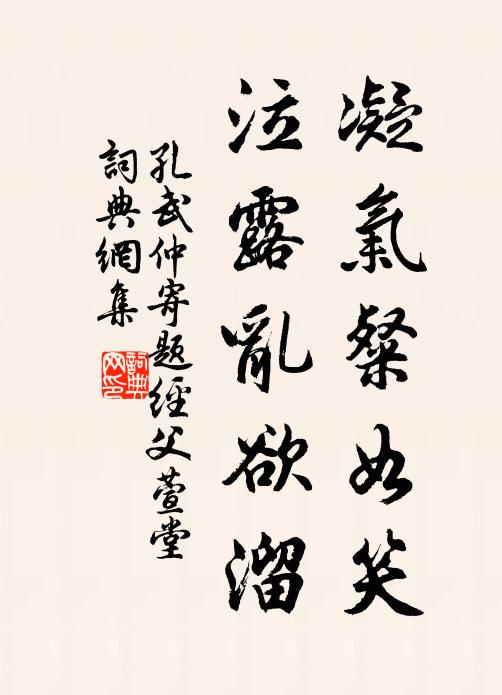 凝氣粲如笑
泣露亂欲溜
孔武仲寄題經父萱堂
詞典網集
詞典網印